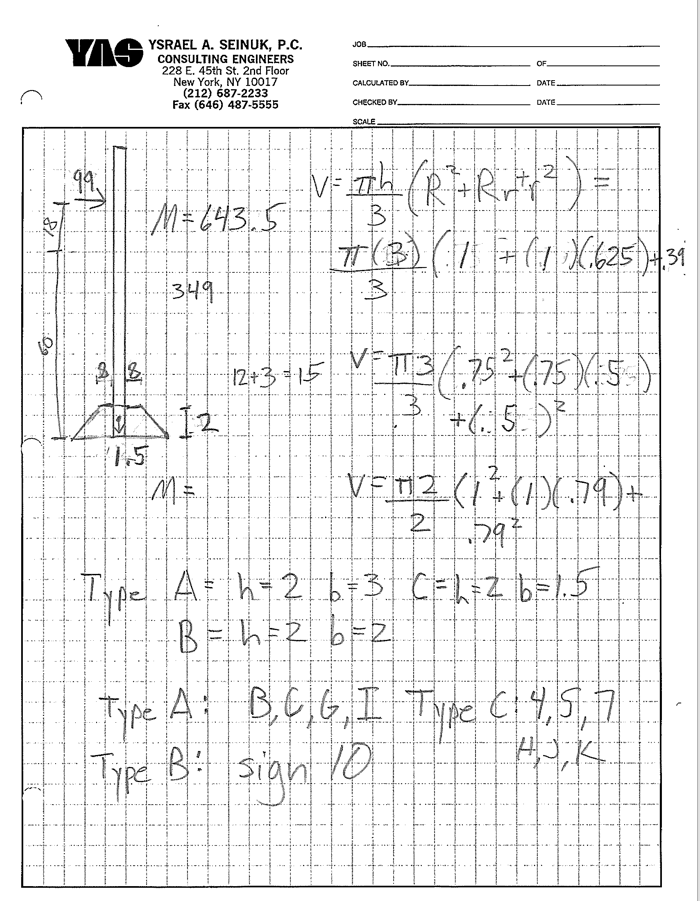 YAS
YSRAEL A. SEINUK, P.C.
CONSULTING ENGINEERS
228 E. 45th St. 2nd Floor
New York, NY 10017
(212) 687-2233
Fax (646) 487-5555
JOB
SHEET NO. OF
CALCULATED BY DATE
CHECKED BY DATE
SCALE
99
18
60
M = 643.5
349
8 8
12+3 = 15
2
1.5
M =
V = πh/3 (R²+Rr+r²) =
π(3)/3 (.1 + (1)(.625)+.39
V = π3/3 (.75²+(.75)(.5)
+(.5)²
V = π2/2 (1²+(1)(.79)+
.79²
Type A = h=2 b=3 C = h=2 b=1.5
B = h=2 b=2
Type A: B,C,G,I Type C: 4,5,7
H,J,K
Type B: sign 10